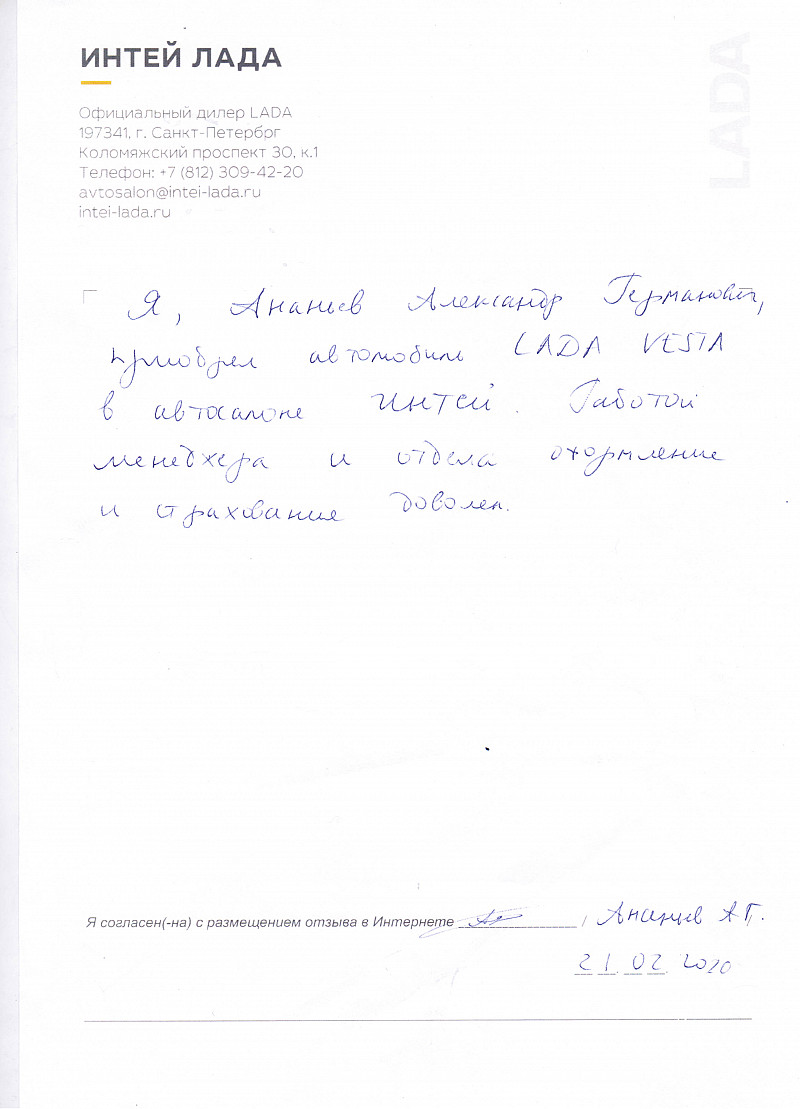 ИНТЕЙ ЛАДА
LADA
Официальный дилер LADA
197341, г. Санкт-Петербрг
Коломяжский проспект 30, к.1
Телефон: +7 (812) 309-42-20
avtosalon@intei-lada.ru
intei-lada.ru
Я, Ананьев Александр Германович,
приобрел автомобиль LADA VESTA
в автосалоне ИНТЕЙ. Работой
менеджера и отдела оформление
и страхования доволен.
Я согласен(-на) с размещением отзыва в Интернете / Ананьев А.Г.
21.02.2020